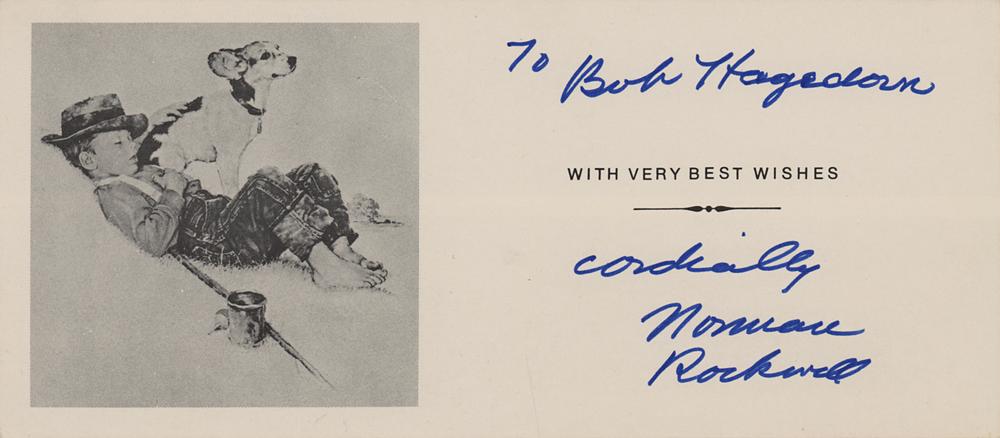 To Bob Hagedorn
WITH VERY BEST WISHES
cordially
Norman
Rockwell